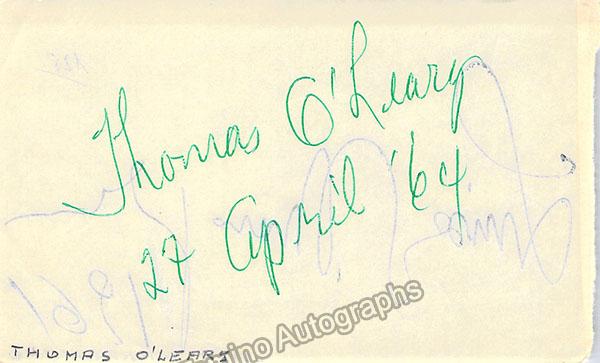 Thomas O'Leary
27 April '64
THOMAS O'LEARY
Autographs